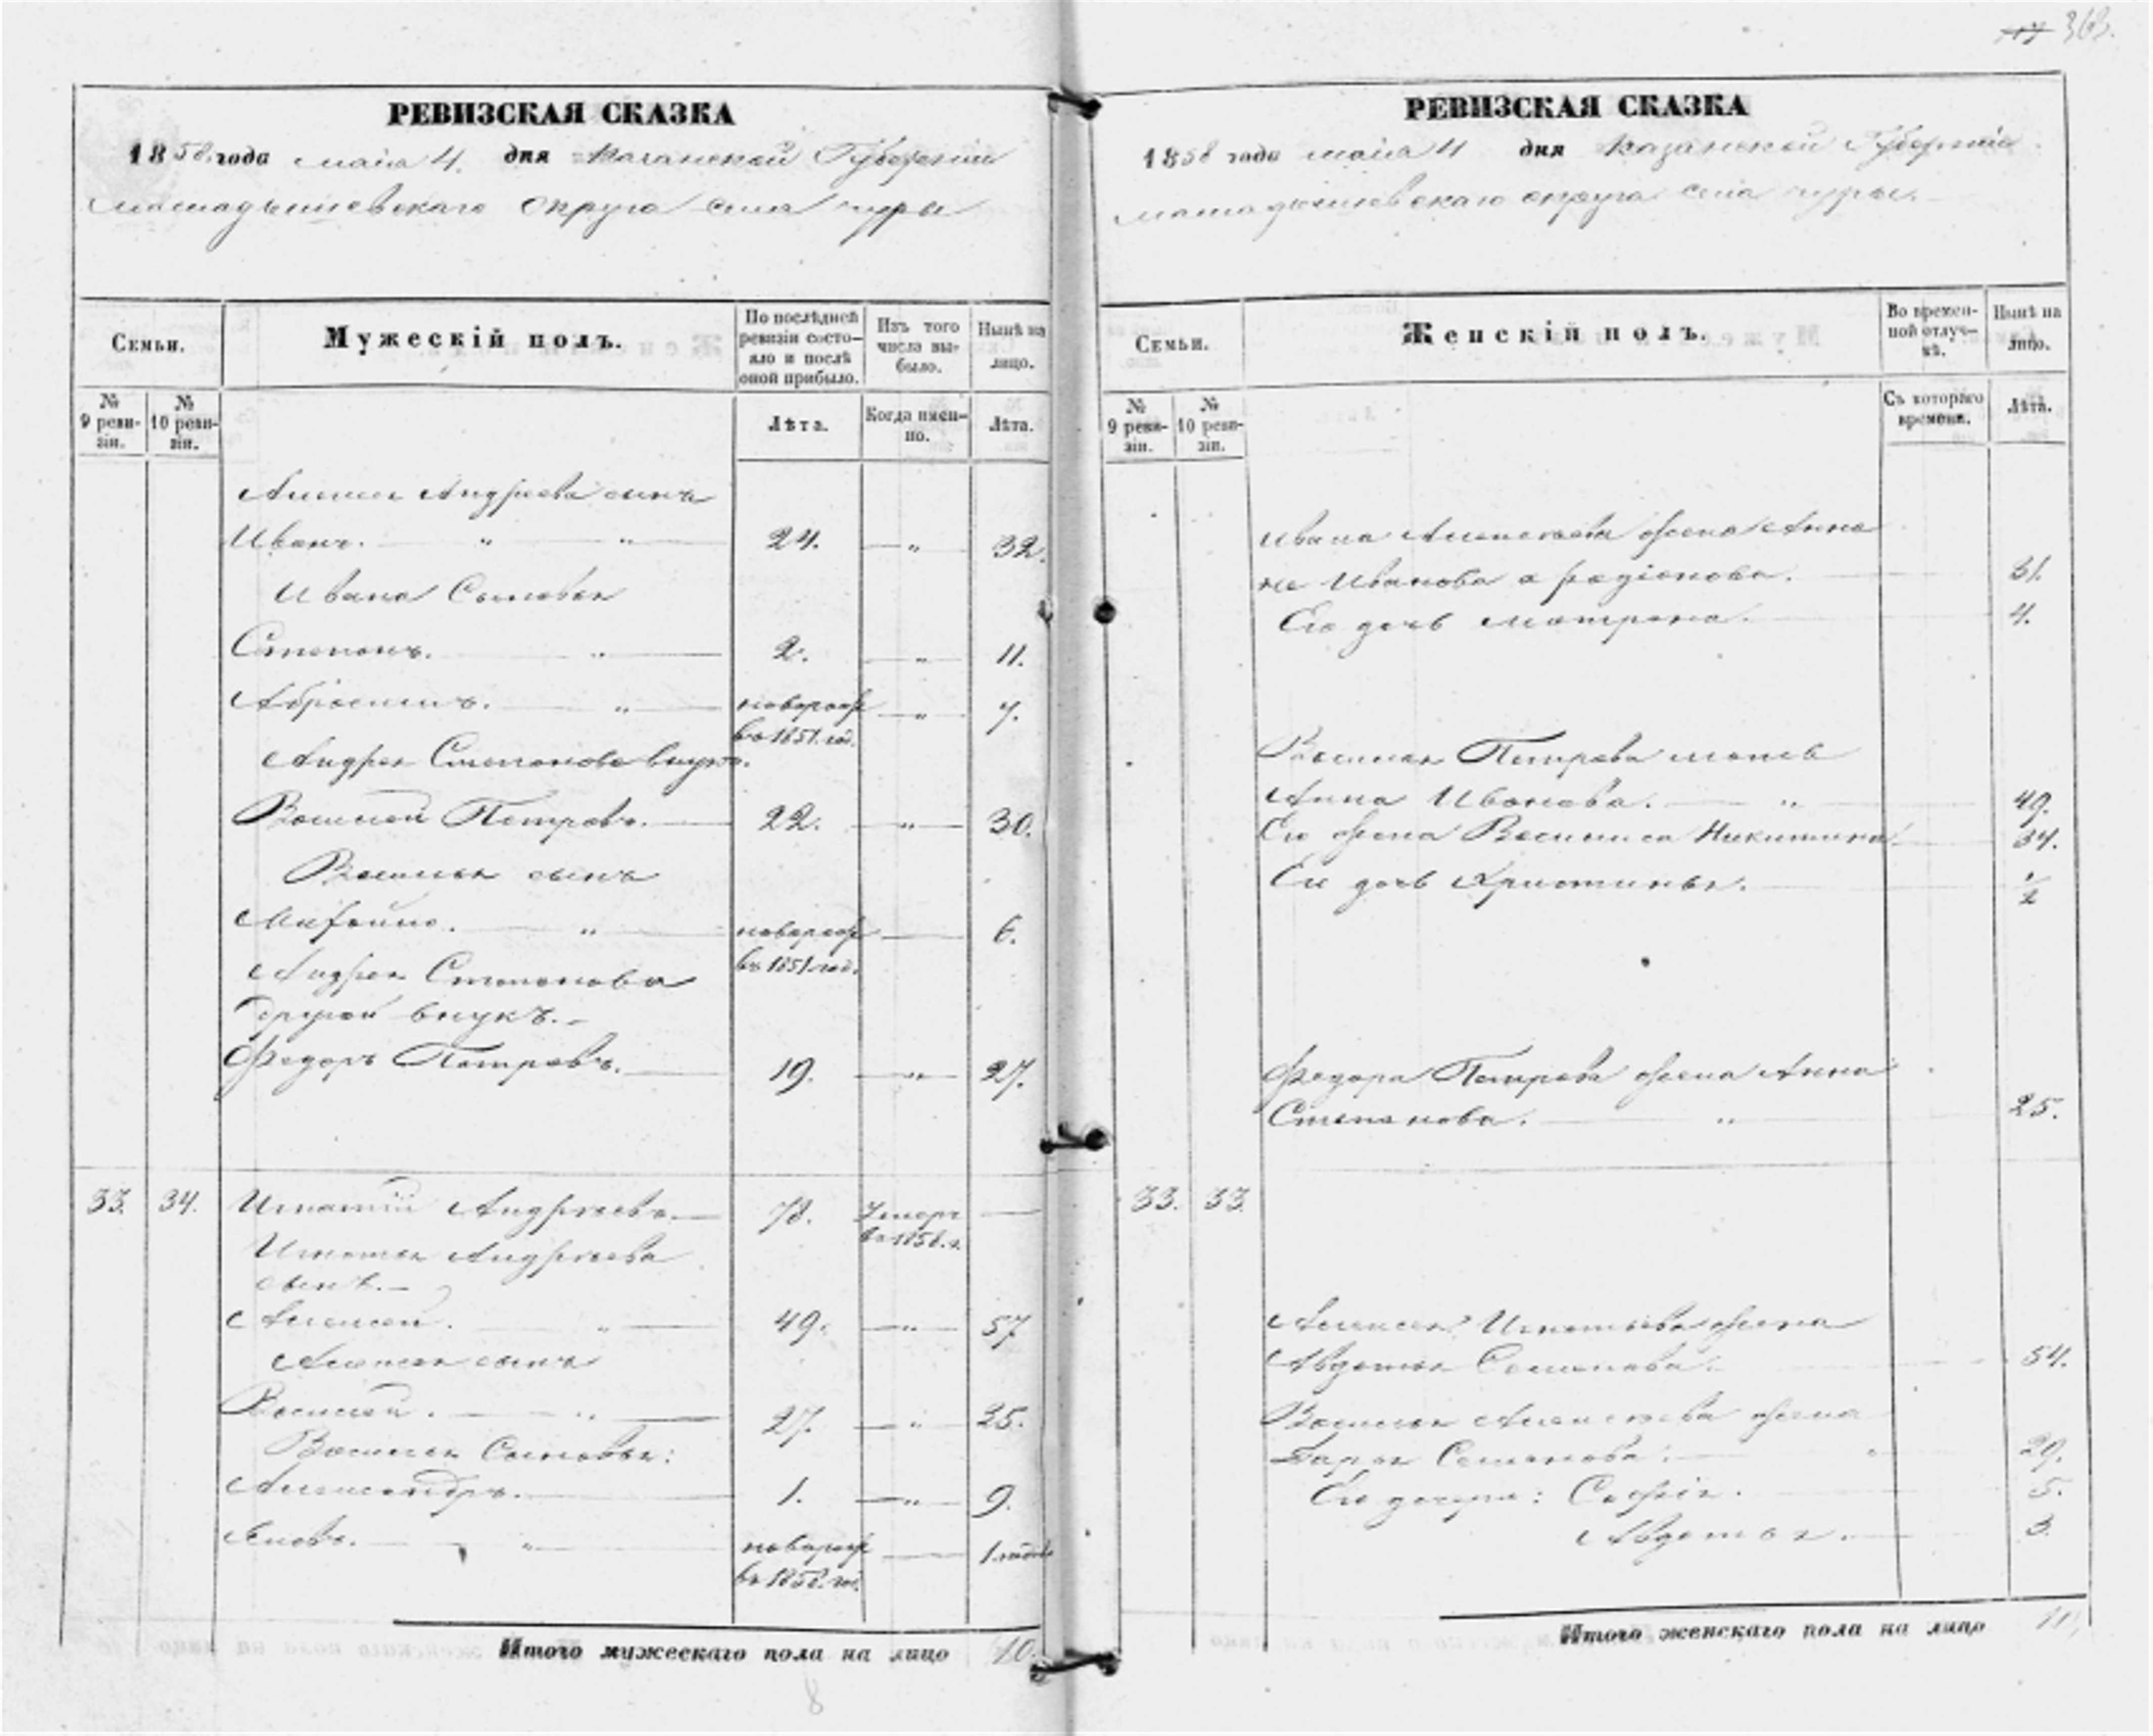 363.
РЕВИЗСКАЯ СКАЗКА
1858 года маія 4. дня Казанской Губерніи
Мамадышевскаго округа села Чуры
Семьи.
Мужескій полъ.
По послѣдней ревизіи состояло и послѣ оной прибыло.
Изъ того числа выбыло.
Нынѣ на лицо.
№ 9 ревизіи.
№ 10 ревизіи.
Лѣта.
Когда именно.
Лѣта.
Алексея Андреева сынъ
Иванъ. 24. 32.
Ивана Сыновья
Степанъ. 2. 11.
Абросимъ. новорож въ 1851. год. 7.
Андрея Степанова внукъ.
Василей Петровъ. 22. 30.
Василья сынъ
новорож въ 1851 год. 6.
Андрея Степанова
другой внукъ.
Федоръ Петровъ. 19. 27.
33. 34. Игнатій Андреевъ. 78. Умеръ
Игнатья Андреева
сынъ.
Алексей. 49. 57
Алексея сынъ
Василей. 27. 35.
Василья Сыновья:
Александръ. 1. 9.
Яковъ. новорож
Итого мужескаго пола на лицо 10.
8
РЕВИЗСКАЯ СКАЗКА
1858 года маія 4 дня Казанской Губерніи
Мамадышевскаго округа села Чуры.
Семьи.
Женскій полъ.
Во временной отлучкѣ.
Нынѣ на лицо.
№ 9 ревизіи.
№ 10 ревизіи.
Съ котораго времени.
Лѣта.
Ивана Алексеева жена Анна
не Иванова а Радіонова. 31.
Его дочь Матрена. 4.
Василья Петрова мать
Анна Иванова. 49.
Его жена Василиса Никитина. 34.
Его дочь Христинья. 1/2
Федора Петрова жена Анна
Степанова. 25.
33. 33.
Алексея Игнатьева жена
Авдотья Семенова. 54.
Василья Алексеева жена
Дарья Семенова. 29.
Его дочери: Софія. 5.
Авдотья. 3.
Итого женскаго пола на лицо